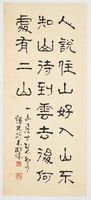 人說住山好入山不
知山待到雲去後何
處有二山